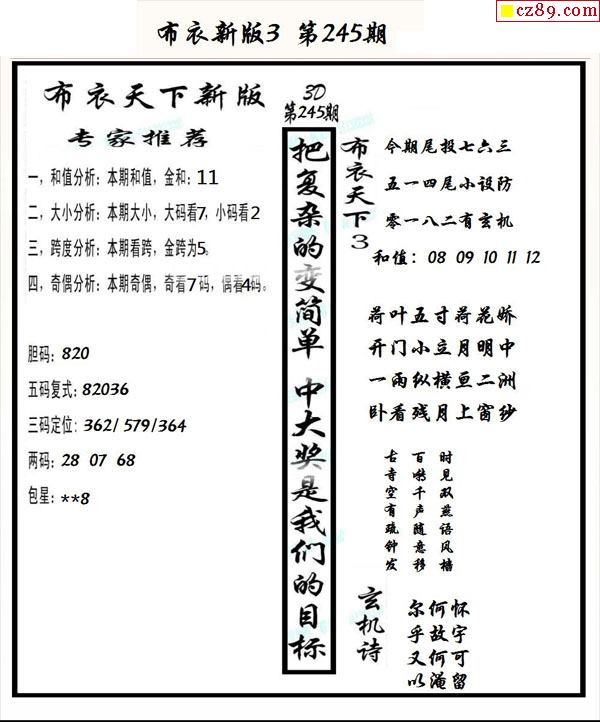 cz89.com
布衣新版3 第245期
布衣天下新版
专家推荐
一，和值分析：本期和值，金和：11
二，大小分析：本期大小，大码看7，小码看2
三，跨度分析：本期看跨，金跨为5。
四，奇偶分析：本期奇偶，奇看7码，偶看4码。
胆码：820
五码复式：82036
三码定位：362/ 579/364
两码：28 07 68
包星：**8
3D
第245期
把复杂的变简单 中大奖是我们的目标
布衣天下3
今期尾投七六三
五一四尾小设防
零一八二有玄机
和值：08 09 10 11 12
荷叶五寸荷花娇
开门小立月明中
一雨纵横亘二洲
卧看残月上窗纱
时见双燕语风樯
百啭千声随意移
古寺空有疏钟发
玄机诗
尔何怀
乎故宇
又何可
以淹留